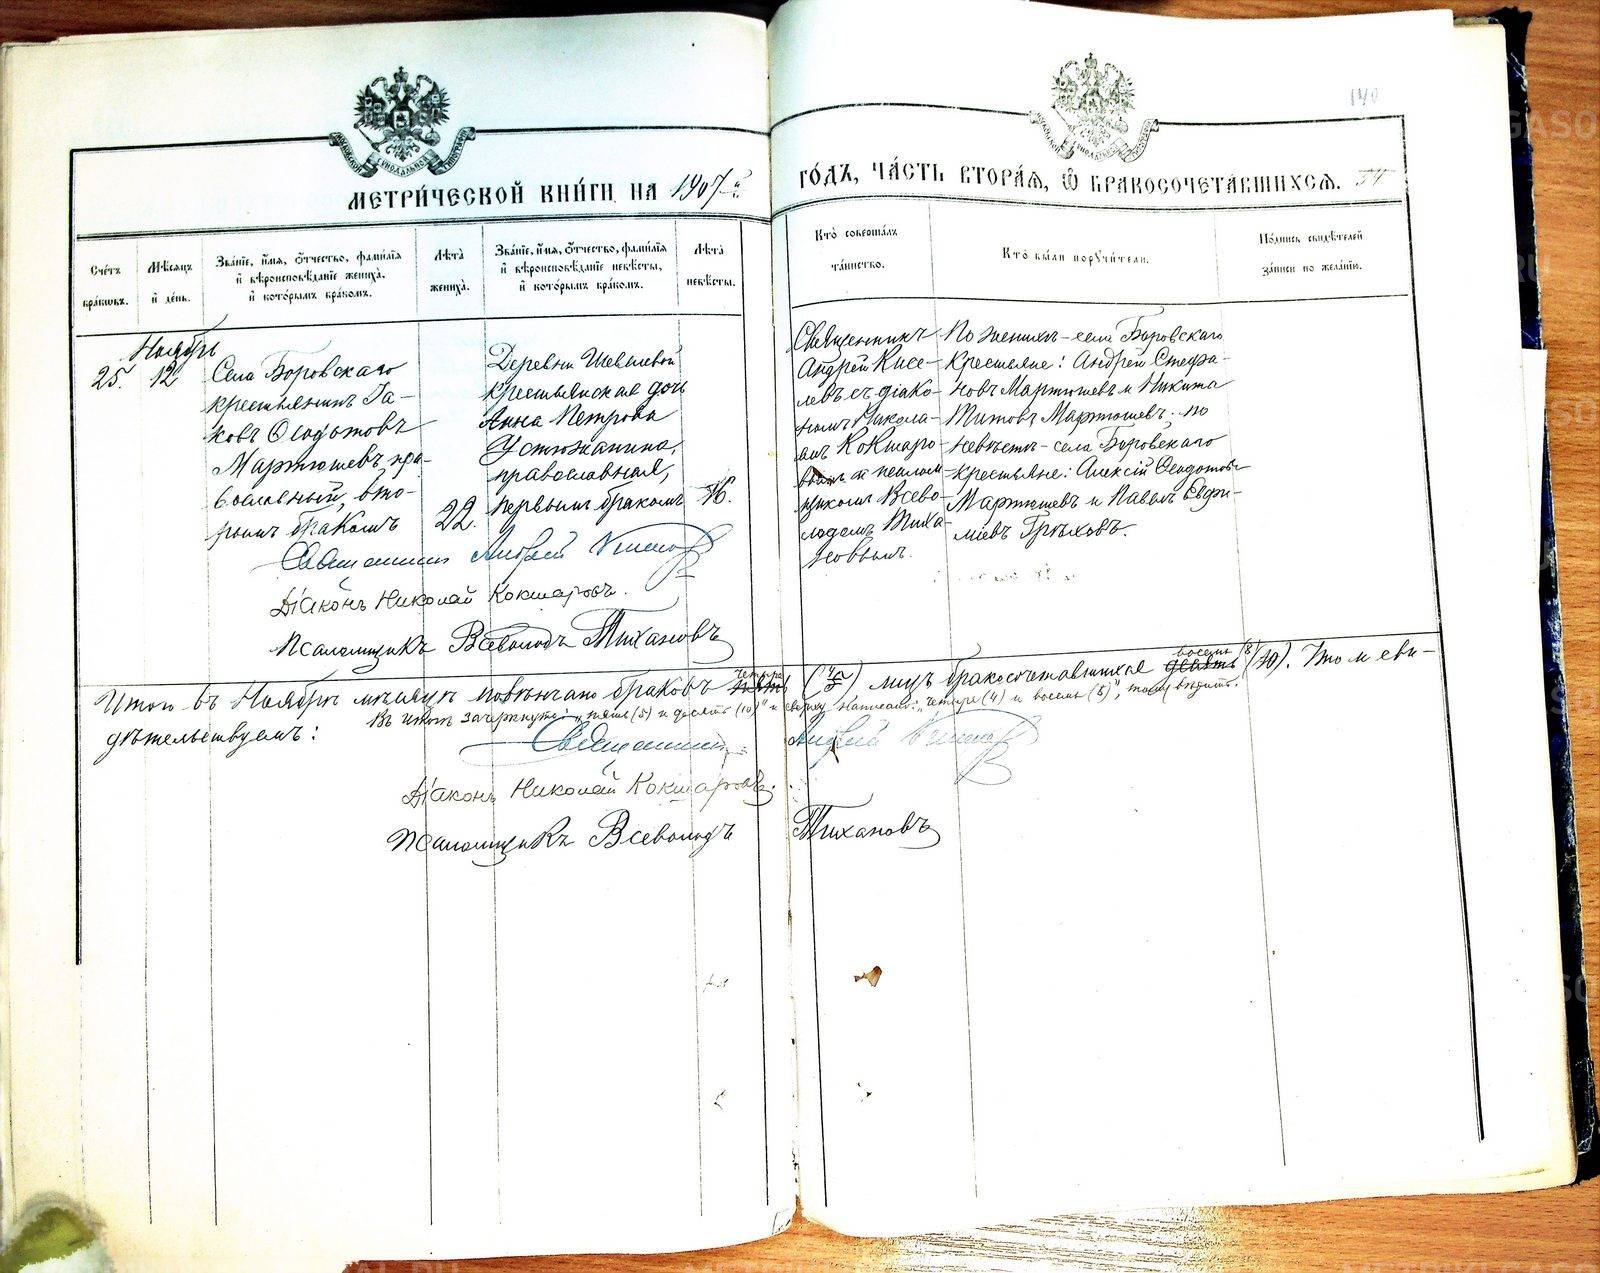 140
МЕТРИЧЕСКОЙ КНИГИ НА 1907-й
ГОДЪ, ЧАСТЬ ВТОРАЯ, Ѿ БРАКОСОЧЕТАВШИХСЯ. 54
Счетъ браковъ.
Мѣсяцъ и день.
Званіе, имя, отчество, фамилія
и вѣроисповѣданіе жениха,
и которымъ бракомъ.
Лѣта
жениха.
Званіе, имя, отчество, фамилія
и вѣроисповѣданіе невѣсты,
и которымъ бракомъ.
Лѣта
невѣсты.
Кто совершалъ
таинство.
Кто были поручители.
Подпись свидѣтелей
записи по желанію.
Ноябрь
25.
12
Села Боровскаго
крестьянинъ Іа-
ковъ Ѳеодотовъ
Мартюшевъ, пра-
вославный, вто-
рымъ бракомъ
22.
Деревни Шевелевой
крестьянская дочь
Анна Петрова
Устюжанина,
православная,
первымъ бракомъ
16.
Священникъ
Андрей Кисе-
левъ съ діако-
номъ Никола-
емъ Кокшаро-
вымъ и псалом-
щикомъ Всево-
лодомъ Тиха-
новымъ.
По женихѣ - села Боровскаго
крестьяне: Андрей Стефа-
новъ Мартюшевъ и Никита
Титовъ Мартюшевъ; по
невѣстѣ - села Боровскаго
крестьяне: Алексій Ѳеодотовъ
Мартюшевъ и Павелъ Евфи-
міевъ Грѣховъ.
Священникъ Андрей Киселевъ
Діаконъ Николай Кокшаровъ.
Псаломщикъ Всеволодъ Тихановъ
четыре восемь (8)
Итого въ Ноябрѣ мѣсяцѣ повѣнчано браковъ пять (4/5) лицъ бракосочетавшихся десять (10). Въ томъ сви-
Въ итогѣ зачеркнуто: „пять (5) и десять (10)" и сверху написано: „четыре (4) и восемь (8)", тому вѣрить.
дѣтельствуемъ:
Священникъ Андрей Киселевъ
Діаконъ Николай Кокшаровъ.
Псаломщикъ Всеволодъ Тихановъ